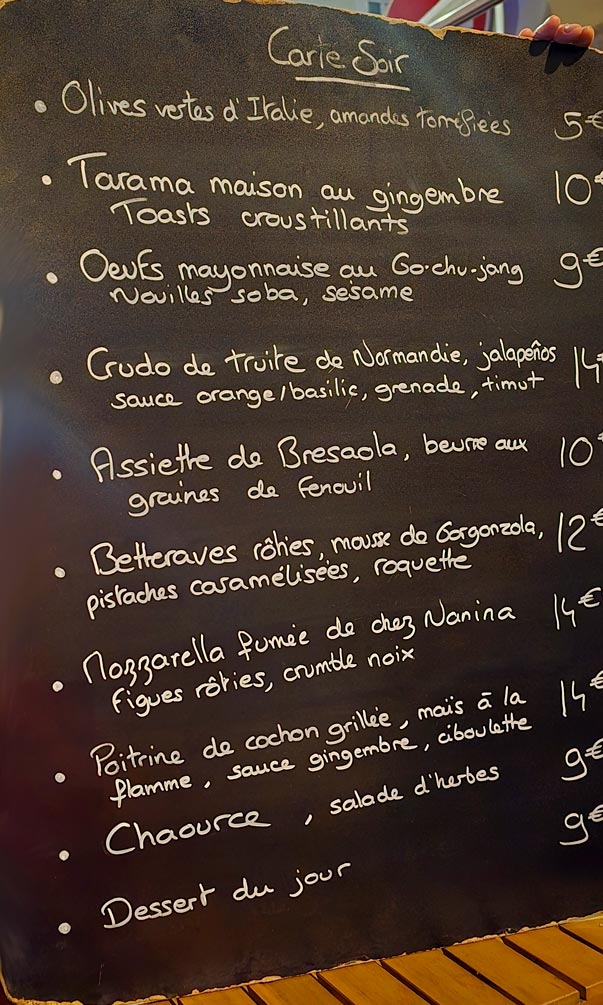 Carte Soir
• Olives vertes d'Italie, amandes torréfiées 5€
• Tarama maison au gingembre 10€
Toasts croustillants
• Oeufs mayonnaise au Go-chu-jang 9€
Nouilles soba, sesame
• Crudo de truite de Normandie, jalapeños 14€
sauce orange/basilic, grenade, timut
• Assiette de Bresaola, beurre aux 10€
graines de fenouil
• Betteraves rôties, mousse de Gorgonzola, 12€
pistaches caramélisées, roquette
• Mozzarella fumée de chez Nanina 14€
figues rôties, crumble noix
• Poitrine de cochon grillée, maïs à la 14€
flamme, sauce gingembre, ciboulette
• Chaource, salade d'herbes 9€
• Dessert du jour 9€